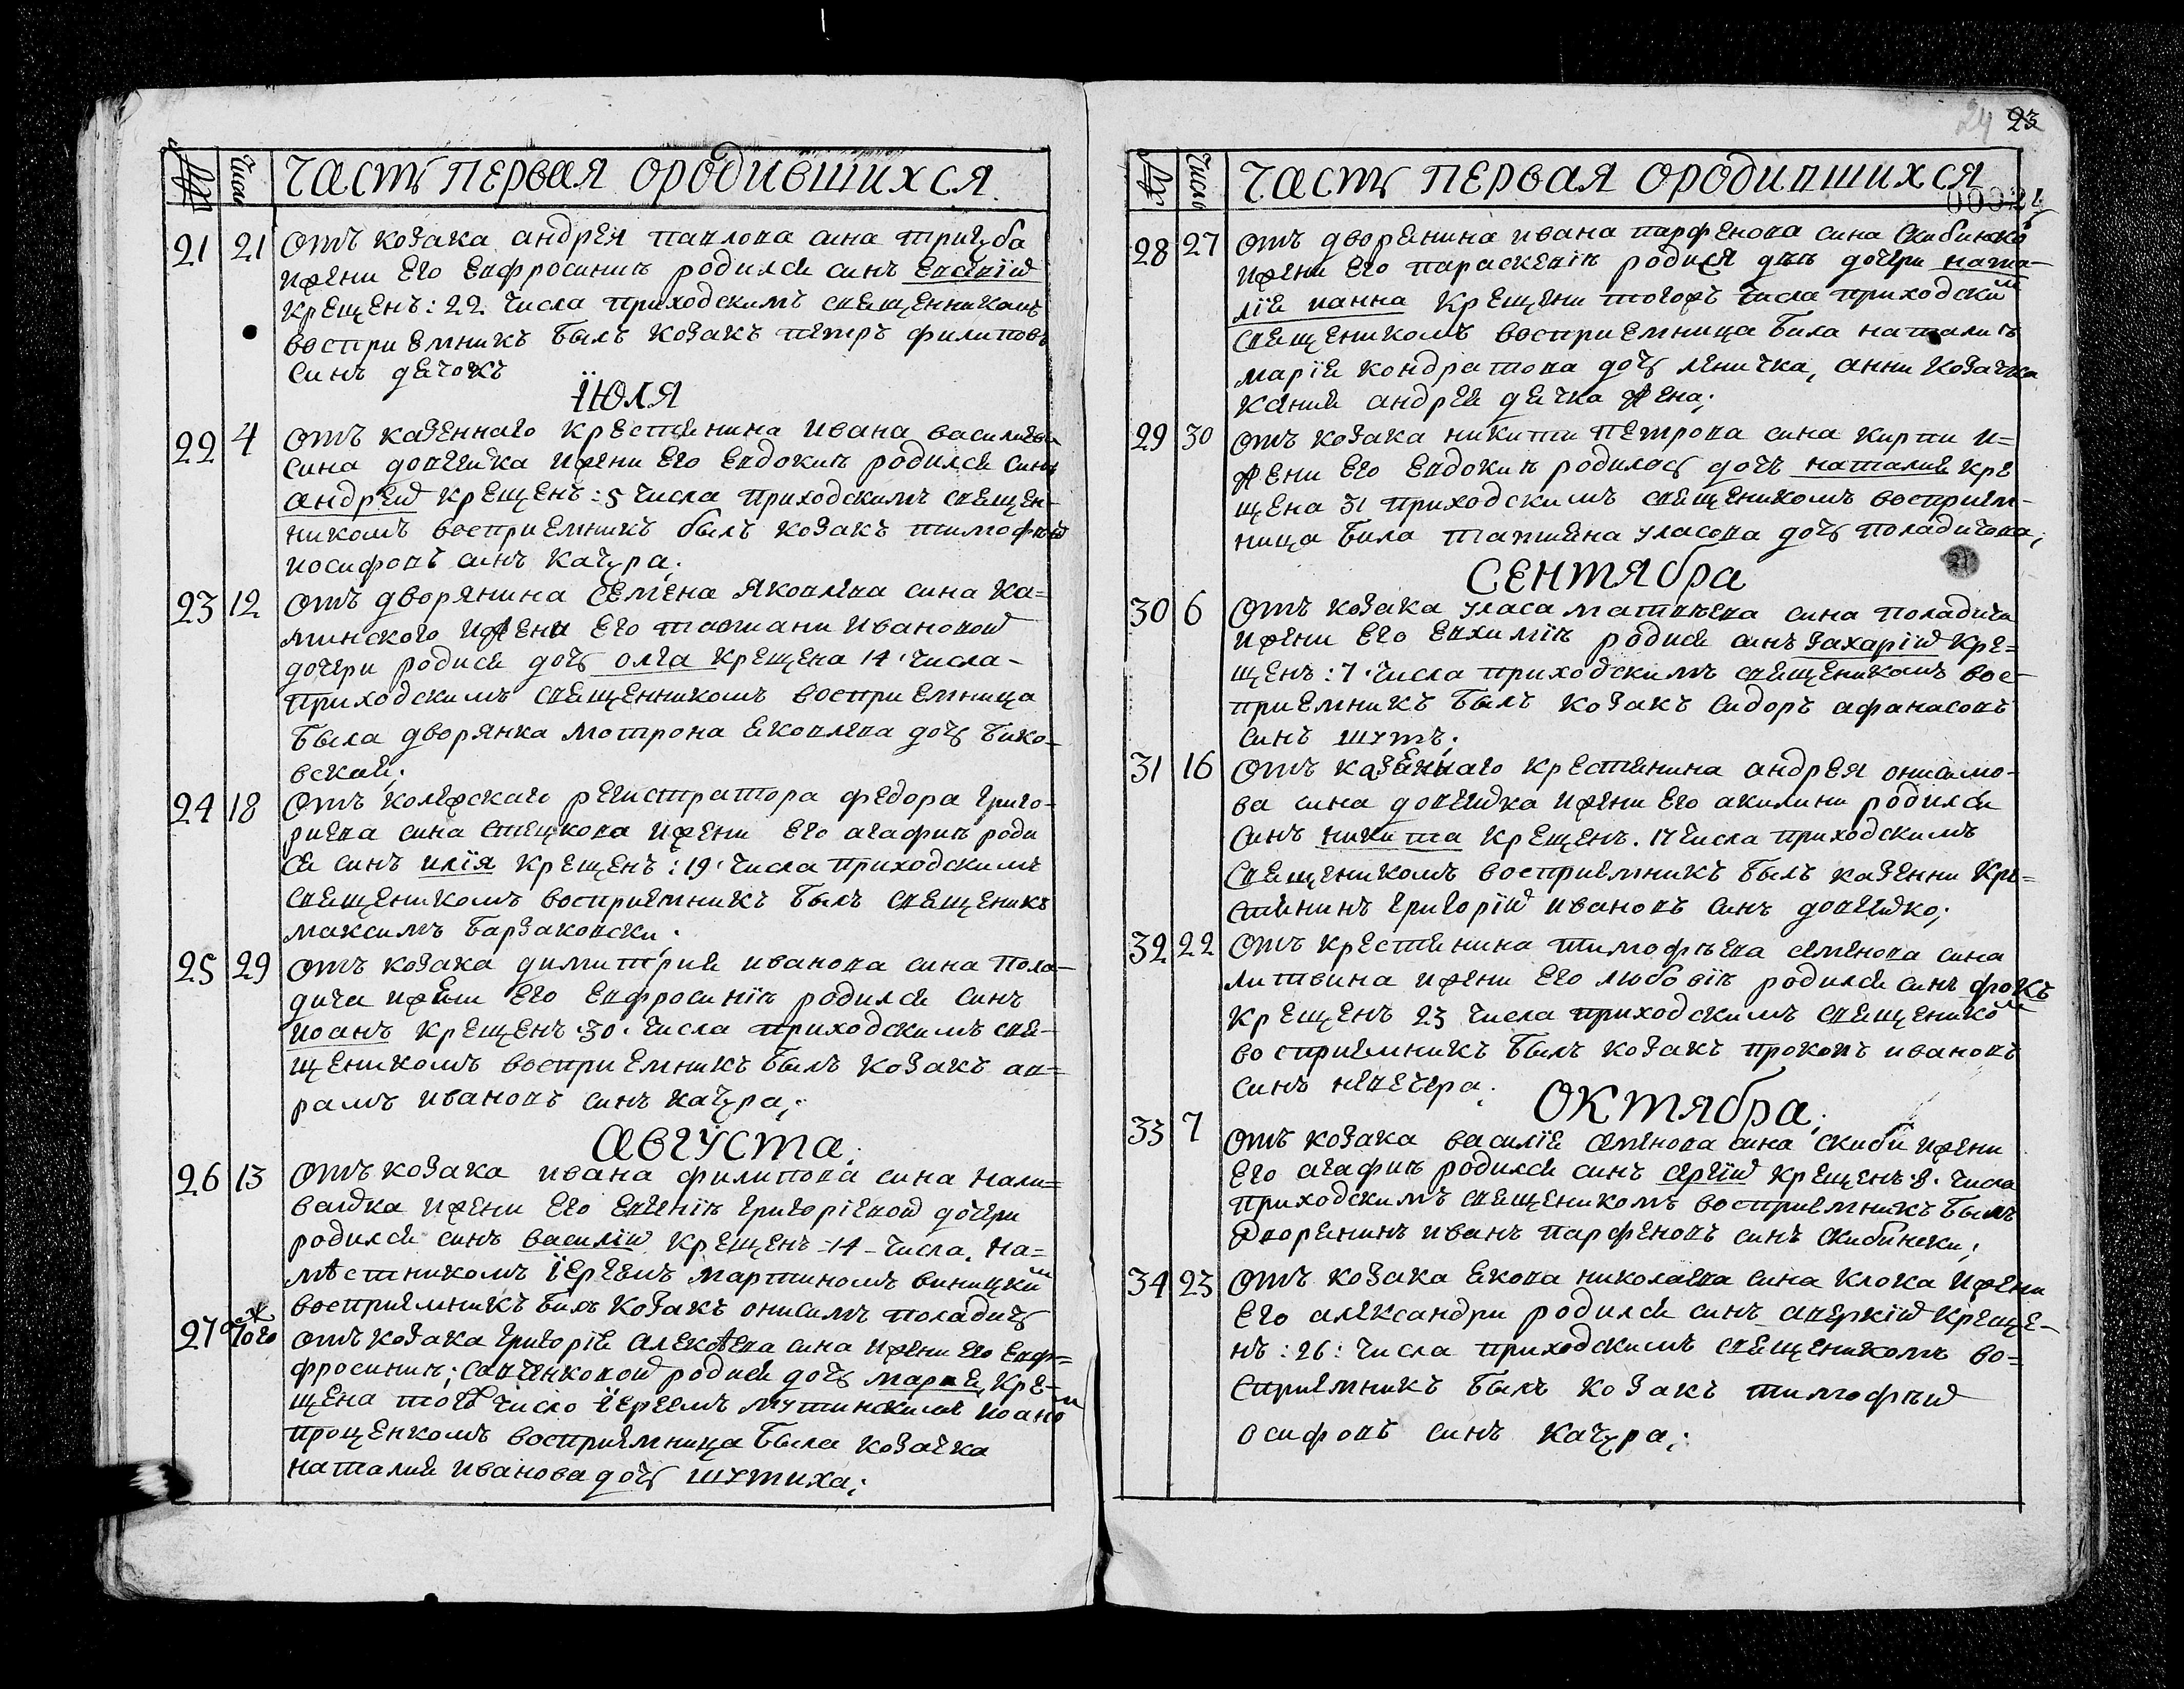 Часть первая ородившихся
21 21 Отъ козака андрея павлова сина тригуба
ижени его евфросиниѣ родился синъ евсевїй
крещенъ: 22 числа приходскимъ священникомъ
восприемникъ былъ козакъ петръ филиповъ
синъ дячокъ
Їюля
22 4 Отъ казеннаго крестянина ивана василиева
сина довгийка ижени его евдокиѣ родился синъ
андрей крещенъ: 5 числа приходскимъ священ-
никомъ восприемникъ былъ козакъ тимофѣй
иосифовъ синъ качура;
23 12 Отъ дворянина семена яковлева сина ка=
минского ижени его татиани ивановой
дочери родися дочь олга крещена 14 числа-
приходскимъ священникомъ восприемница
была дворянка мотрона яковлева дочь бико-
вская;
24 18 Отъ колежскаго регистратора федора григо-
риева сина стецкова ижени его агафиѣ роди
ся синъ илїя крещенъ: 19 числа приходскимъ
священикомъ восприемникъ былъ священикъ
максимъ барзаковски;
25 29 Отъ козака димитрия иванова сина пола-
дича ижени его евфросинїѣ родился синъ
иоанъ крещенъ 30 числа приходскимъ свя-
щеникомъ восприемникъ былъ козакъ ав=
рамъ ивановъ синъ качура;
Августа;
26 13 Отъ козака ивана филипова сина нали=
вайка ижени его евгенїѣ григорїевой дочери
родился синъ василий крещенъ-14-числа. на=
мѣстникомъ їереемъ мартиномъ виницкимъ
восприемникъ билъ козакъ онисимъ поладичъ
27 тогож Отъ козака григорїя алексѣева сина ижени его евф=
фросиниѣ; савченковой родися дочь мария, кре-
щена того число їереемъ мутинскимъ иоаномъ
прощенкомъ восприемница была козачка
наталия иванова дочь шутиха;
23
24
Часть первая ородившихся
28 27 Отъ дворянина ивана парфенова сина скибинско
ижени его параскевїѣ родися двѣ дочери ната-
лїя ианна крещени тогожъ числа приходским
священикомъ восприемница била наталиѣ
марїя кондратова дочь леничка, анни козачка
кания андрея дячка жена;
29 30 Отъ козака никити петрова сина кирпи и=
жени его евдокиѣ родилось дочъ наталия кре
щена 31 приходскимъ священикомъ восприем-
ница била татияна уласова дочь поладичова;
Сентября
30 6 Отъ козака уласа матвѣева сина поладича
ижени его евхимїѣ родися синъ захарїй кре=
щенъ: 7 числа приходскимъ священикомъ вос-
приемникъ былъ козакъ сидоръ афанасовъ
синъ шутъ;
31 16 Отъ казеннаго крестянина андрея онисимо-
ва сина довгийка ижени его акилини родился
синъ никита крещенъ. 17 числа приходскимъ
священикомъ восприемникъ былъ казенни кре=
стянинъ григорїй ивановъ синъ довгийко;
32 22 Отъ крестянина тимофѣева семенова сина
литвина ижени его любовїѣ родился синъ фокъ
крещенъ 23 числа приходскимъ священиком
восприемникъ былъ козакъ прокопъ ивановъ
синъ невечера;
Октября;
33 7 Отъ козака василїя семенова сина скиби ижени
его агафиѣ родился синъ сергїй крещенъ 8 числа
приходскимъ священикомъ восприемникъ былъ
дворенинъ иванъ парфеновъ синъ скибински;
34 23 Отъ козака якова николаева сина клока ижени
его александри родился синъ аверкїй креще-
нъ: 26: числа приходскимъ священикомъ во=
сприемникъ былъ козакъ тимофѣй
осифовъ синъ качура;